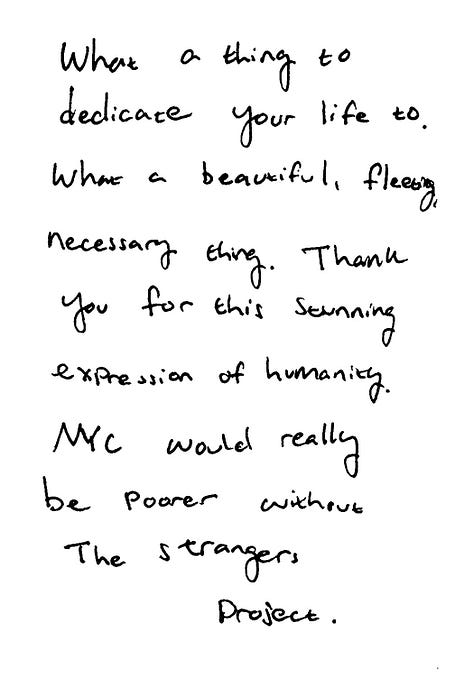 What a thing to
dedicate your life to.
What a beautiful, fleeting,
necessary thing. Thank
you for this stunning
expression of humanity.
NYC would really
be poorer without
The strangers
Project.